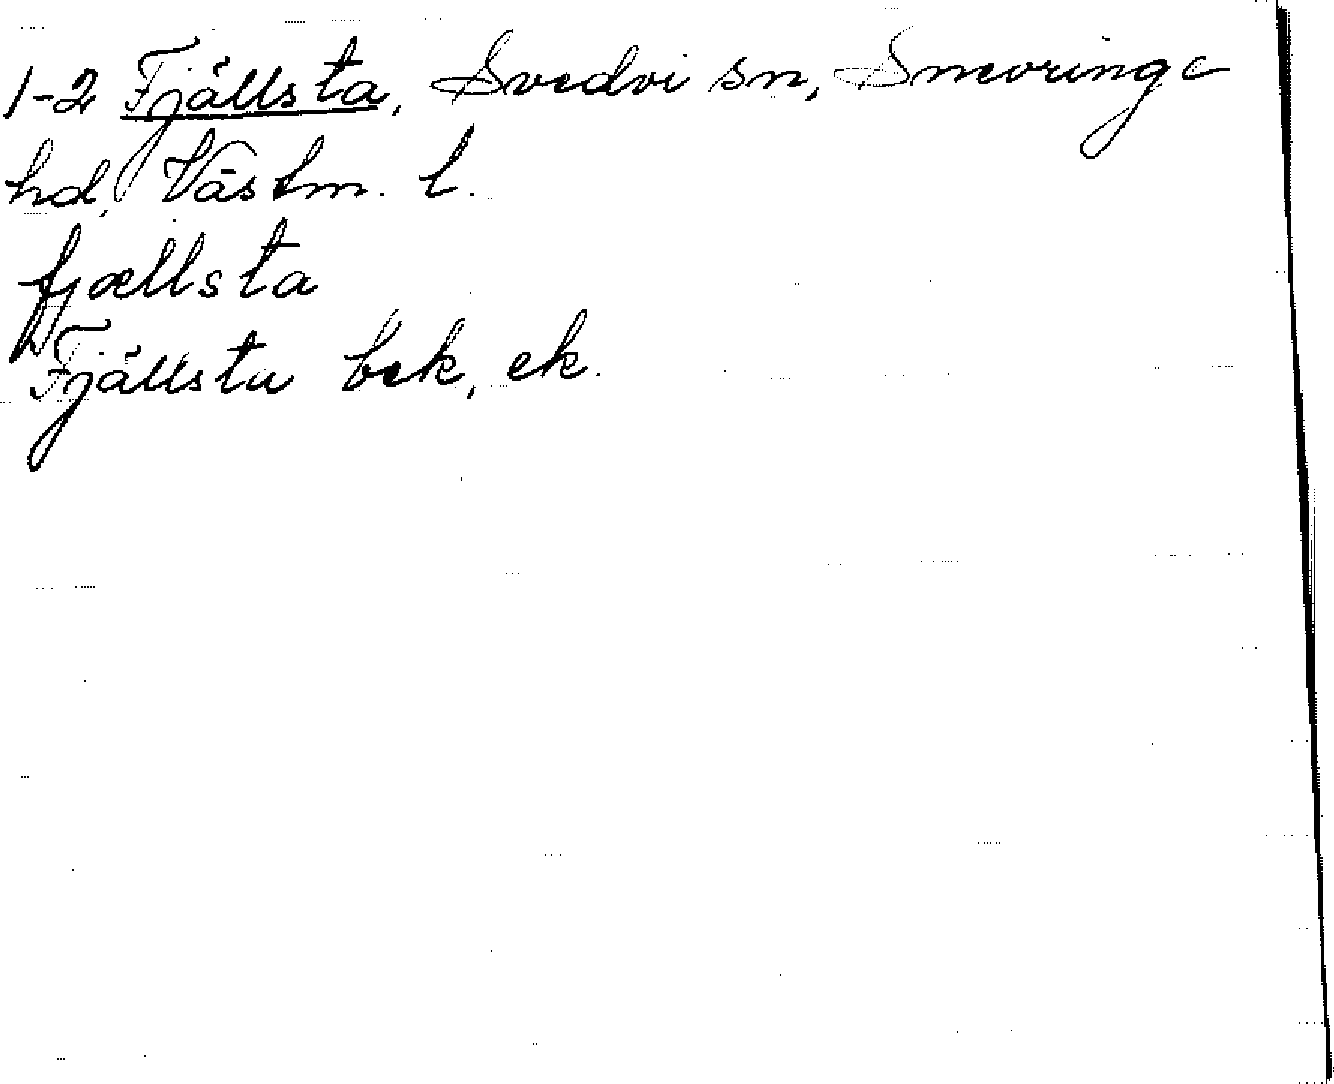 1-2 Fjällsta, Svedvi sn, Snevringe
hd, Västm. l.
fjællsta
Fjällsta bek, ek.